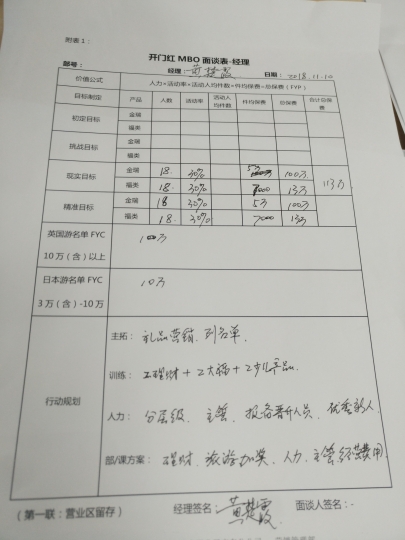 附表1：
开门红 MBO 面谈表-经理
题号： 经理： 日期：2018.11.10
价值公式 人力×活动率×活动人均件数×件均保费=总保费（FYP）
目标制定 产品 人数 活动率 活动人均件数 件均保费 总保费 合计总保费
初定目标 金瑞
福类
挑战目标 金瑞
福类
现实目标 金瑞 18 30% 5万 100万 113万
福类 18 30% 7000 13万
精准目标 金瑞 18 30% 5万 100万
福类 18 30% 7000 13万
英国游名单 FYC 10 万（含）以上 100万
日本游名单 FYC 3 万（含）-10 万 10万
行动规划
主拓：礼品营销、列名单
训练：理财+2大福+2少儿产品
人力：分层级、主管、报备晋升人员、优秀新人
部/课方案：理财、旅游加奖、人力、主管经营费用
（第一联：营业区留存） 经理签名： 面谈人签名：